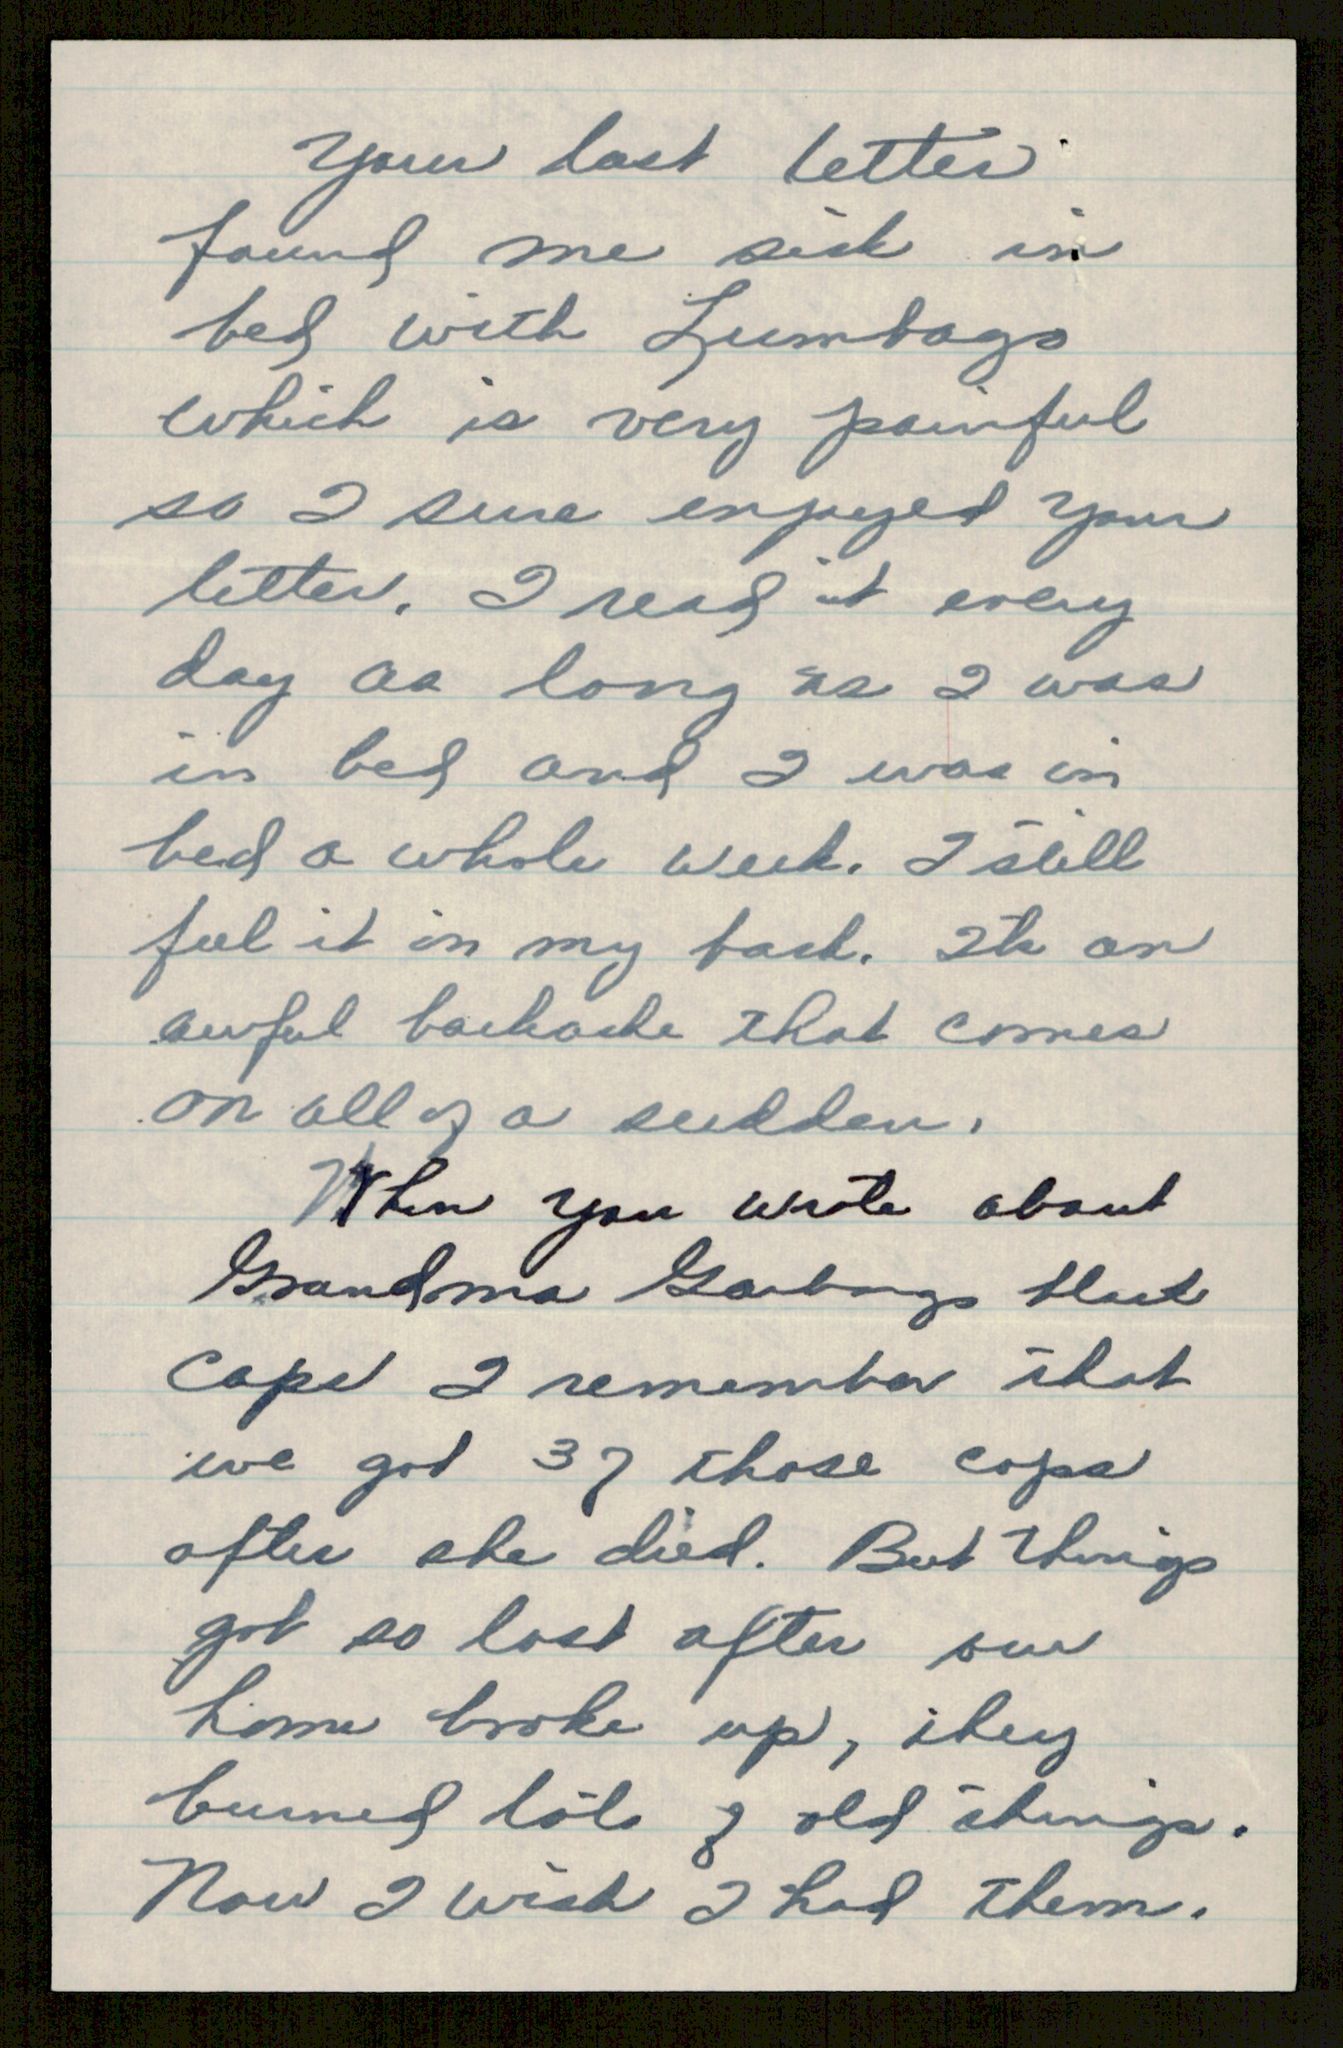 Your last letter
found me sick in
bed with Lumbago
which is very painful
so I sure enjoyed your
letter. I read it every
day as long as I was
in bed and I was in
bed a whole week. I still
feel it in my back. Its an
awful backache that comes
on all of a sudden.
When you wrote about
Grandma black
caps I remember that
we got 3 of those caps
after she died. But things
got so lost after our
home broke up, they
burned lots of old things.
Now I wish I had them.